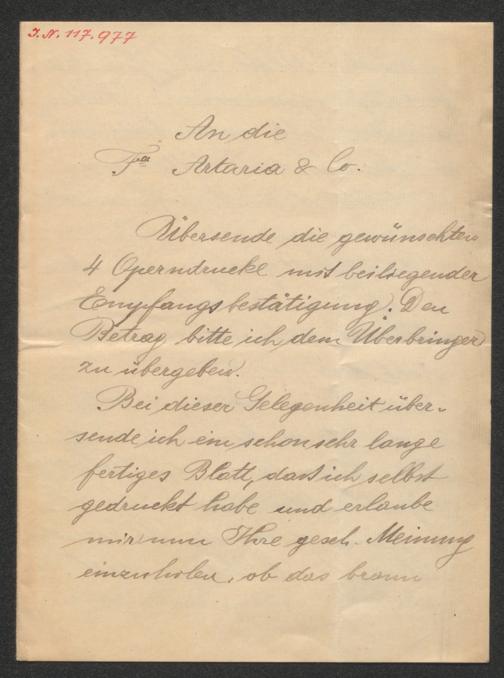 J.N. 117.977
An die
Fa Artaria & Co.
Übersende die gewünschten
4 Operndrucke mit beiliegender
Empfangsbestätigung. Den
Betrag, bitte ich, dem Überbringer
zu übergeben.
Bei dieser Gelegenheit über-
sende ich ein schon sehr lange
fertiges Blatt, das ich selbst
gedruckt habe und erlaube
mir nun Ihre gesch. Meinung
einzuholen, ob das braun